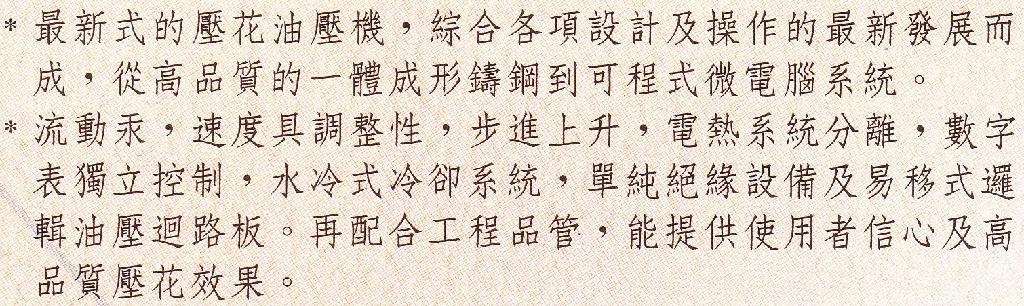 * 最新式的壓花油壓機，綜合各項設計及操作的最新發展而
成，從高品質的一體成形鑄鋼到可程式微電腦系統。
* 流動汞，速度具調整性，步進上升，電熱系統分離，數字
表獨立控制，水冷式冷卻系統，單純絕緣設備及易移式邏
輯油壓迴路板。再配合工程品管，能提供使用者信心及高
品質壓花效果。